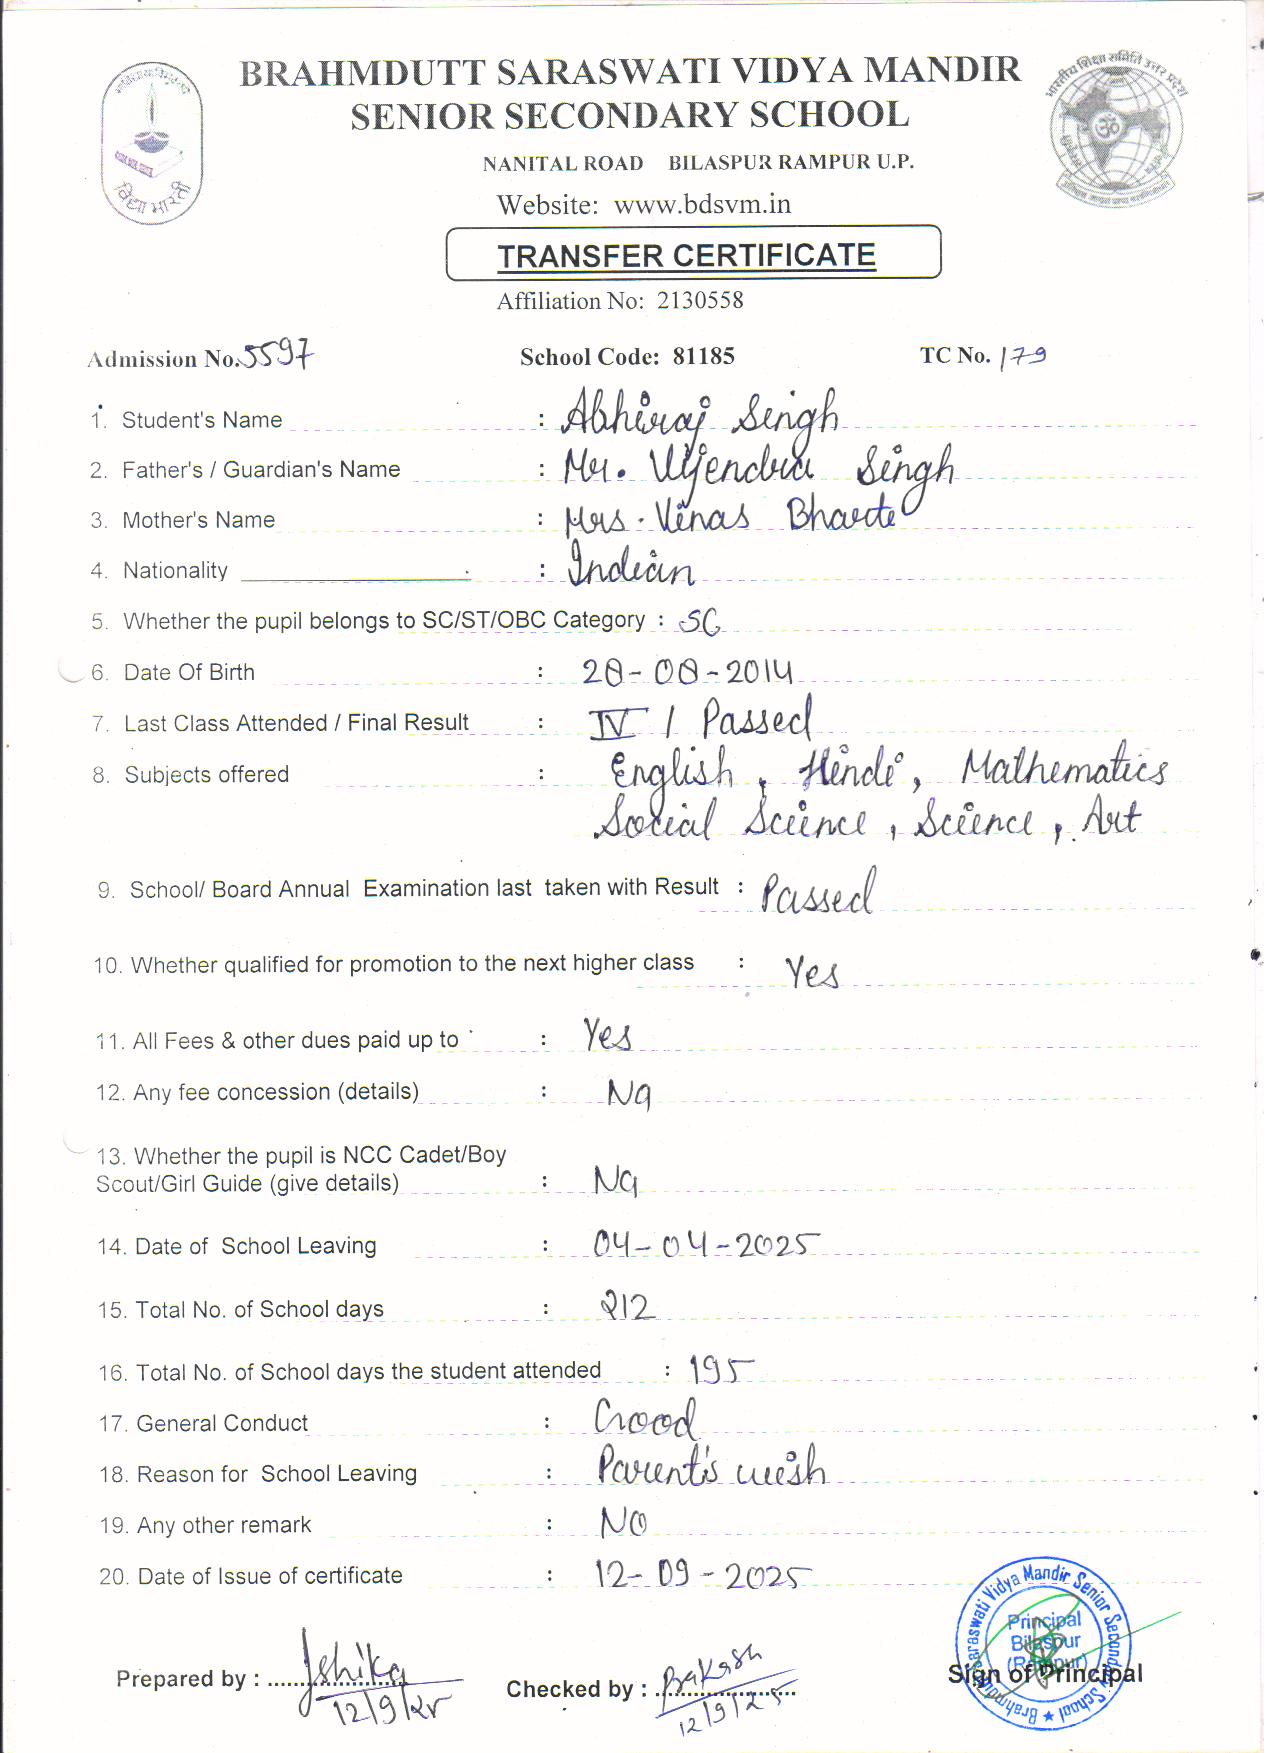 BRAHMDUTT SARASWATI VIDYA MANDIR
SENIOR SECONDARY SCHOOL
NANITAL ROAD BILASPUR RAMPUR U.P.
Website: www.bdsvm.in
विद्या भारती
भारतीय शिक्षा समिति उत्तर प्रदेश
TRANSFER CERTIFICATE
Affiliation No: 2130558
Admission No. 5597 School Code: 81185 TC No. 179
1. Student's Name : Abhiraj Singh
2. Father's / Guardian's Name : Mr. Vijendra Singh
3. Mother's Name : Mrs. Vinas Bharti
4. Nationality : Indian
5. Whether the pupil belongs to SC/ST/OBC Category : SC
6. Date Of Birth : 28-08-2014
7. Last Class Attended / Final Result : IV / Passed
8. Subjects offered : English, Hindi, Mathematics
Social Science, Science, Art
9. School/ Board Annual Examination last taken with Result : Passed
10. Whether qualified for promotion to the next higher class : Yes
11. All Fees & other dues paid up to : Yes
12. Any fee concession (details) : Na
13. Whether the pupil is NCC Cadet/Boy
Scout/Girl Guide (give details) : Na
14. Date of School Leaving : 04-04-2025
15. Total No. of School days : 212
16. Total No. of School days the student attended : 195
17. General Conduct : Good
18. Reason for School Leaving : Parent's wish
19. Any other remark : NO
20. Date of Issue of certificate : 12-09-2025
Prepared by : Ishika
12/9/25
Checked by :
12/9/25
Sign of Principal
Brahmdutt Saraswati Vidya Mandir Senior Secondary School
Principal
Bilaspur
(Rampur)